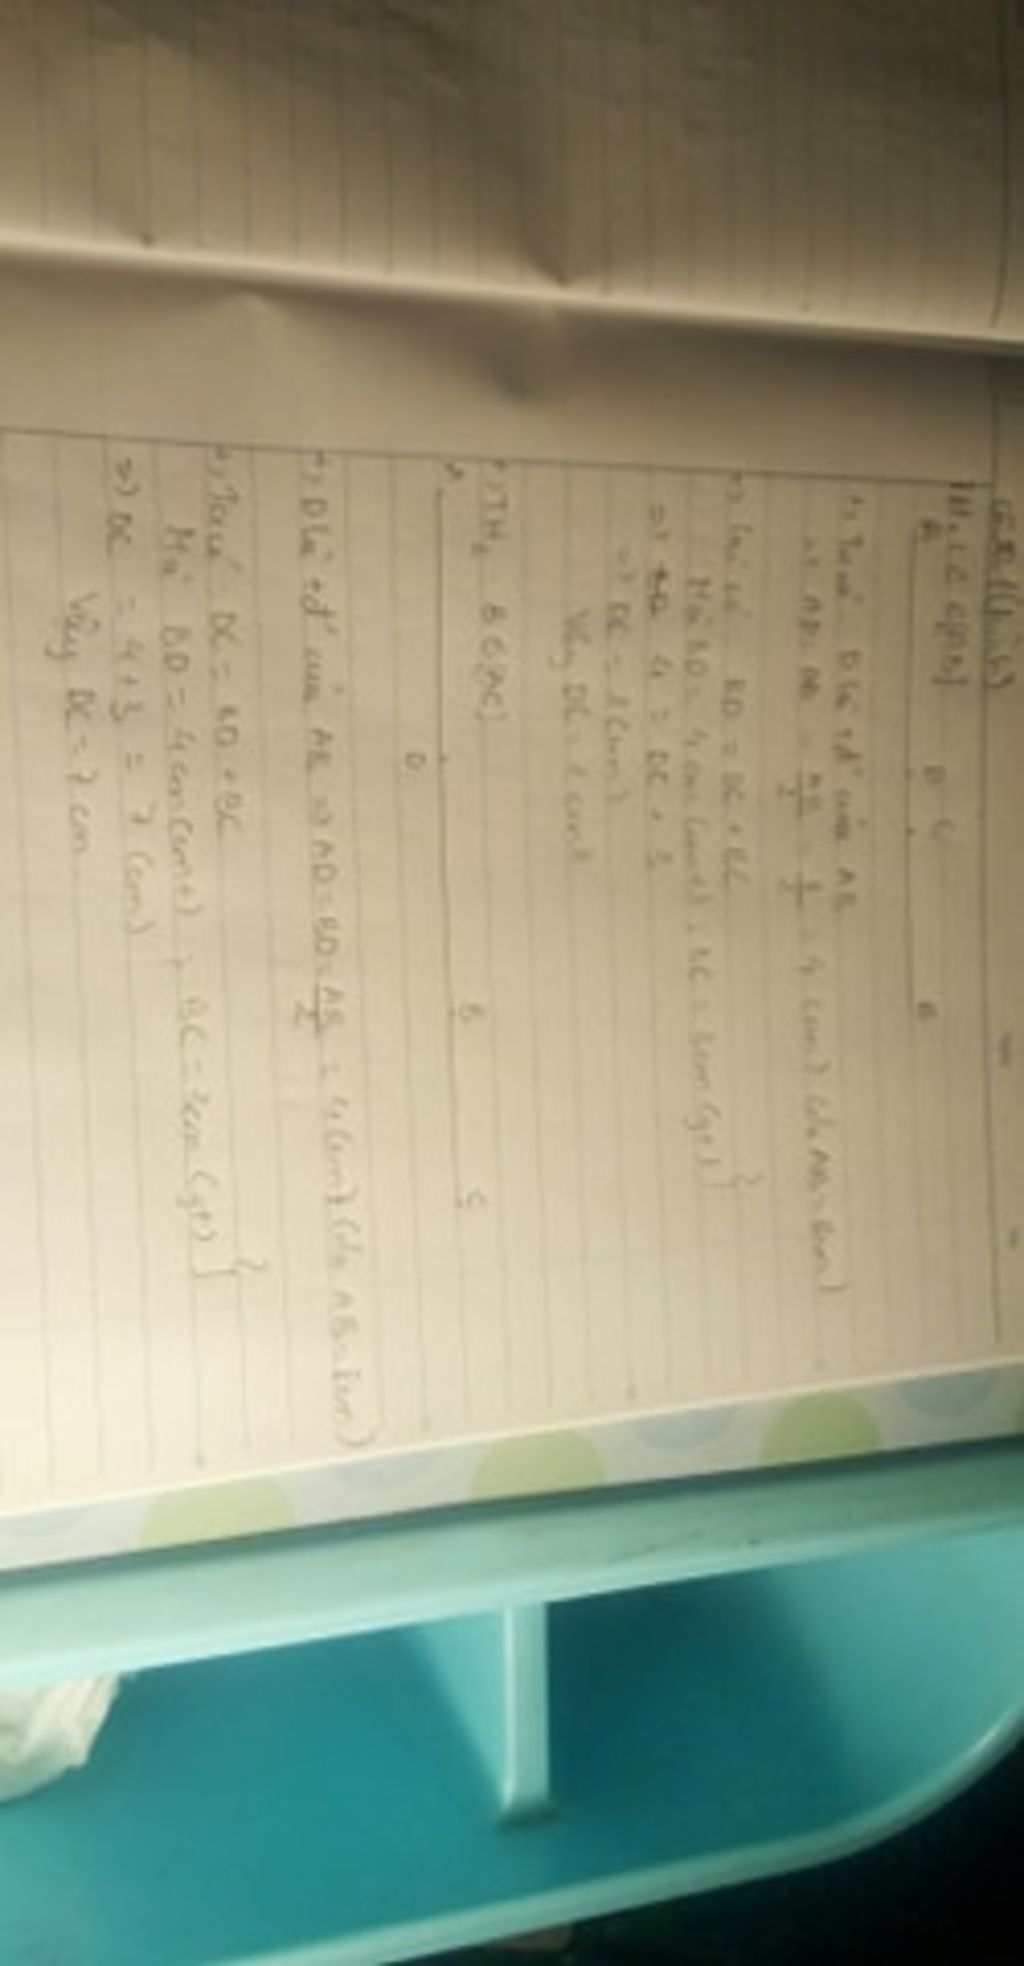 A D C B
+) Ta có D là tđ' của AB
=> AD = DB = AB/2 = 8/2 = 4 (cm) (do AB = 8cm)
+) Lại có BD = DC + BC
Mà BD = 4 cm (cmt), BC = 3cm (gt) }
=> 4 = DC + 3
=> DC = 1 (cm)
Vậy DC = 1 cm
+) TH2: B ∈ [AC]
A D B C
+) D là tđ' của AB => AD = BD = AB/2 = 4 (cm) (do AB = 8cm)
+) Ta có DC = BD + BC
Mà BD = 4 cm (cmt), BC = 3cm (gt) }
=> DC = 4 + 3 = 7 (cm)
Vậy DC = 7 cm